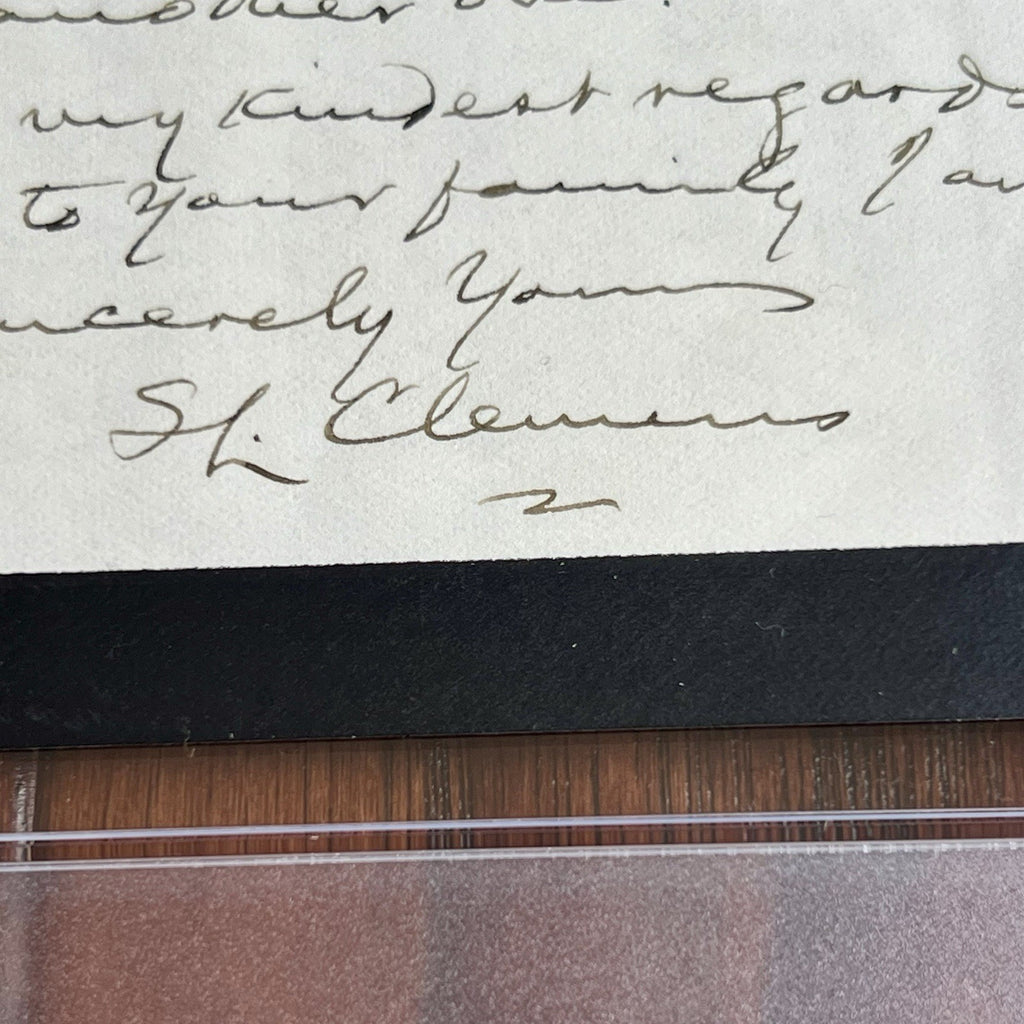 another
my kindest regards
to your family I am
sincerely Yours
SL. Clemens